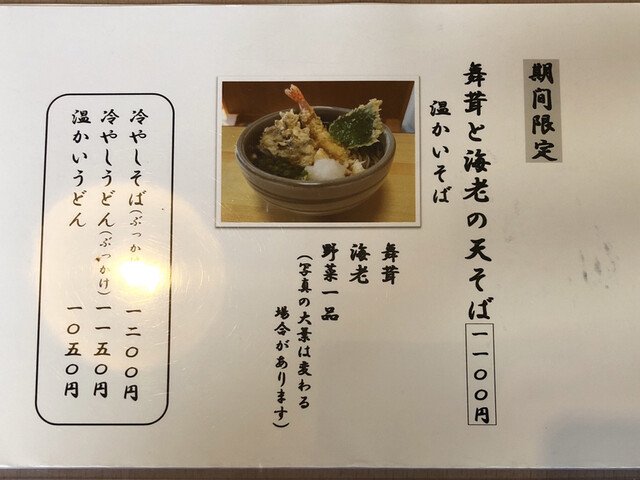 期間限定
舞茸と海老の天そば 一一〇〇円
温かいそば
舞茸
海老
野菜一品
(写真の大葉は変わる
場合があります)
冷やしそば(ぶっか 一二〇〇円
冷やしうどん(ぶっかけ) 一一五〇円
温かいうどん 一〇五〇円